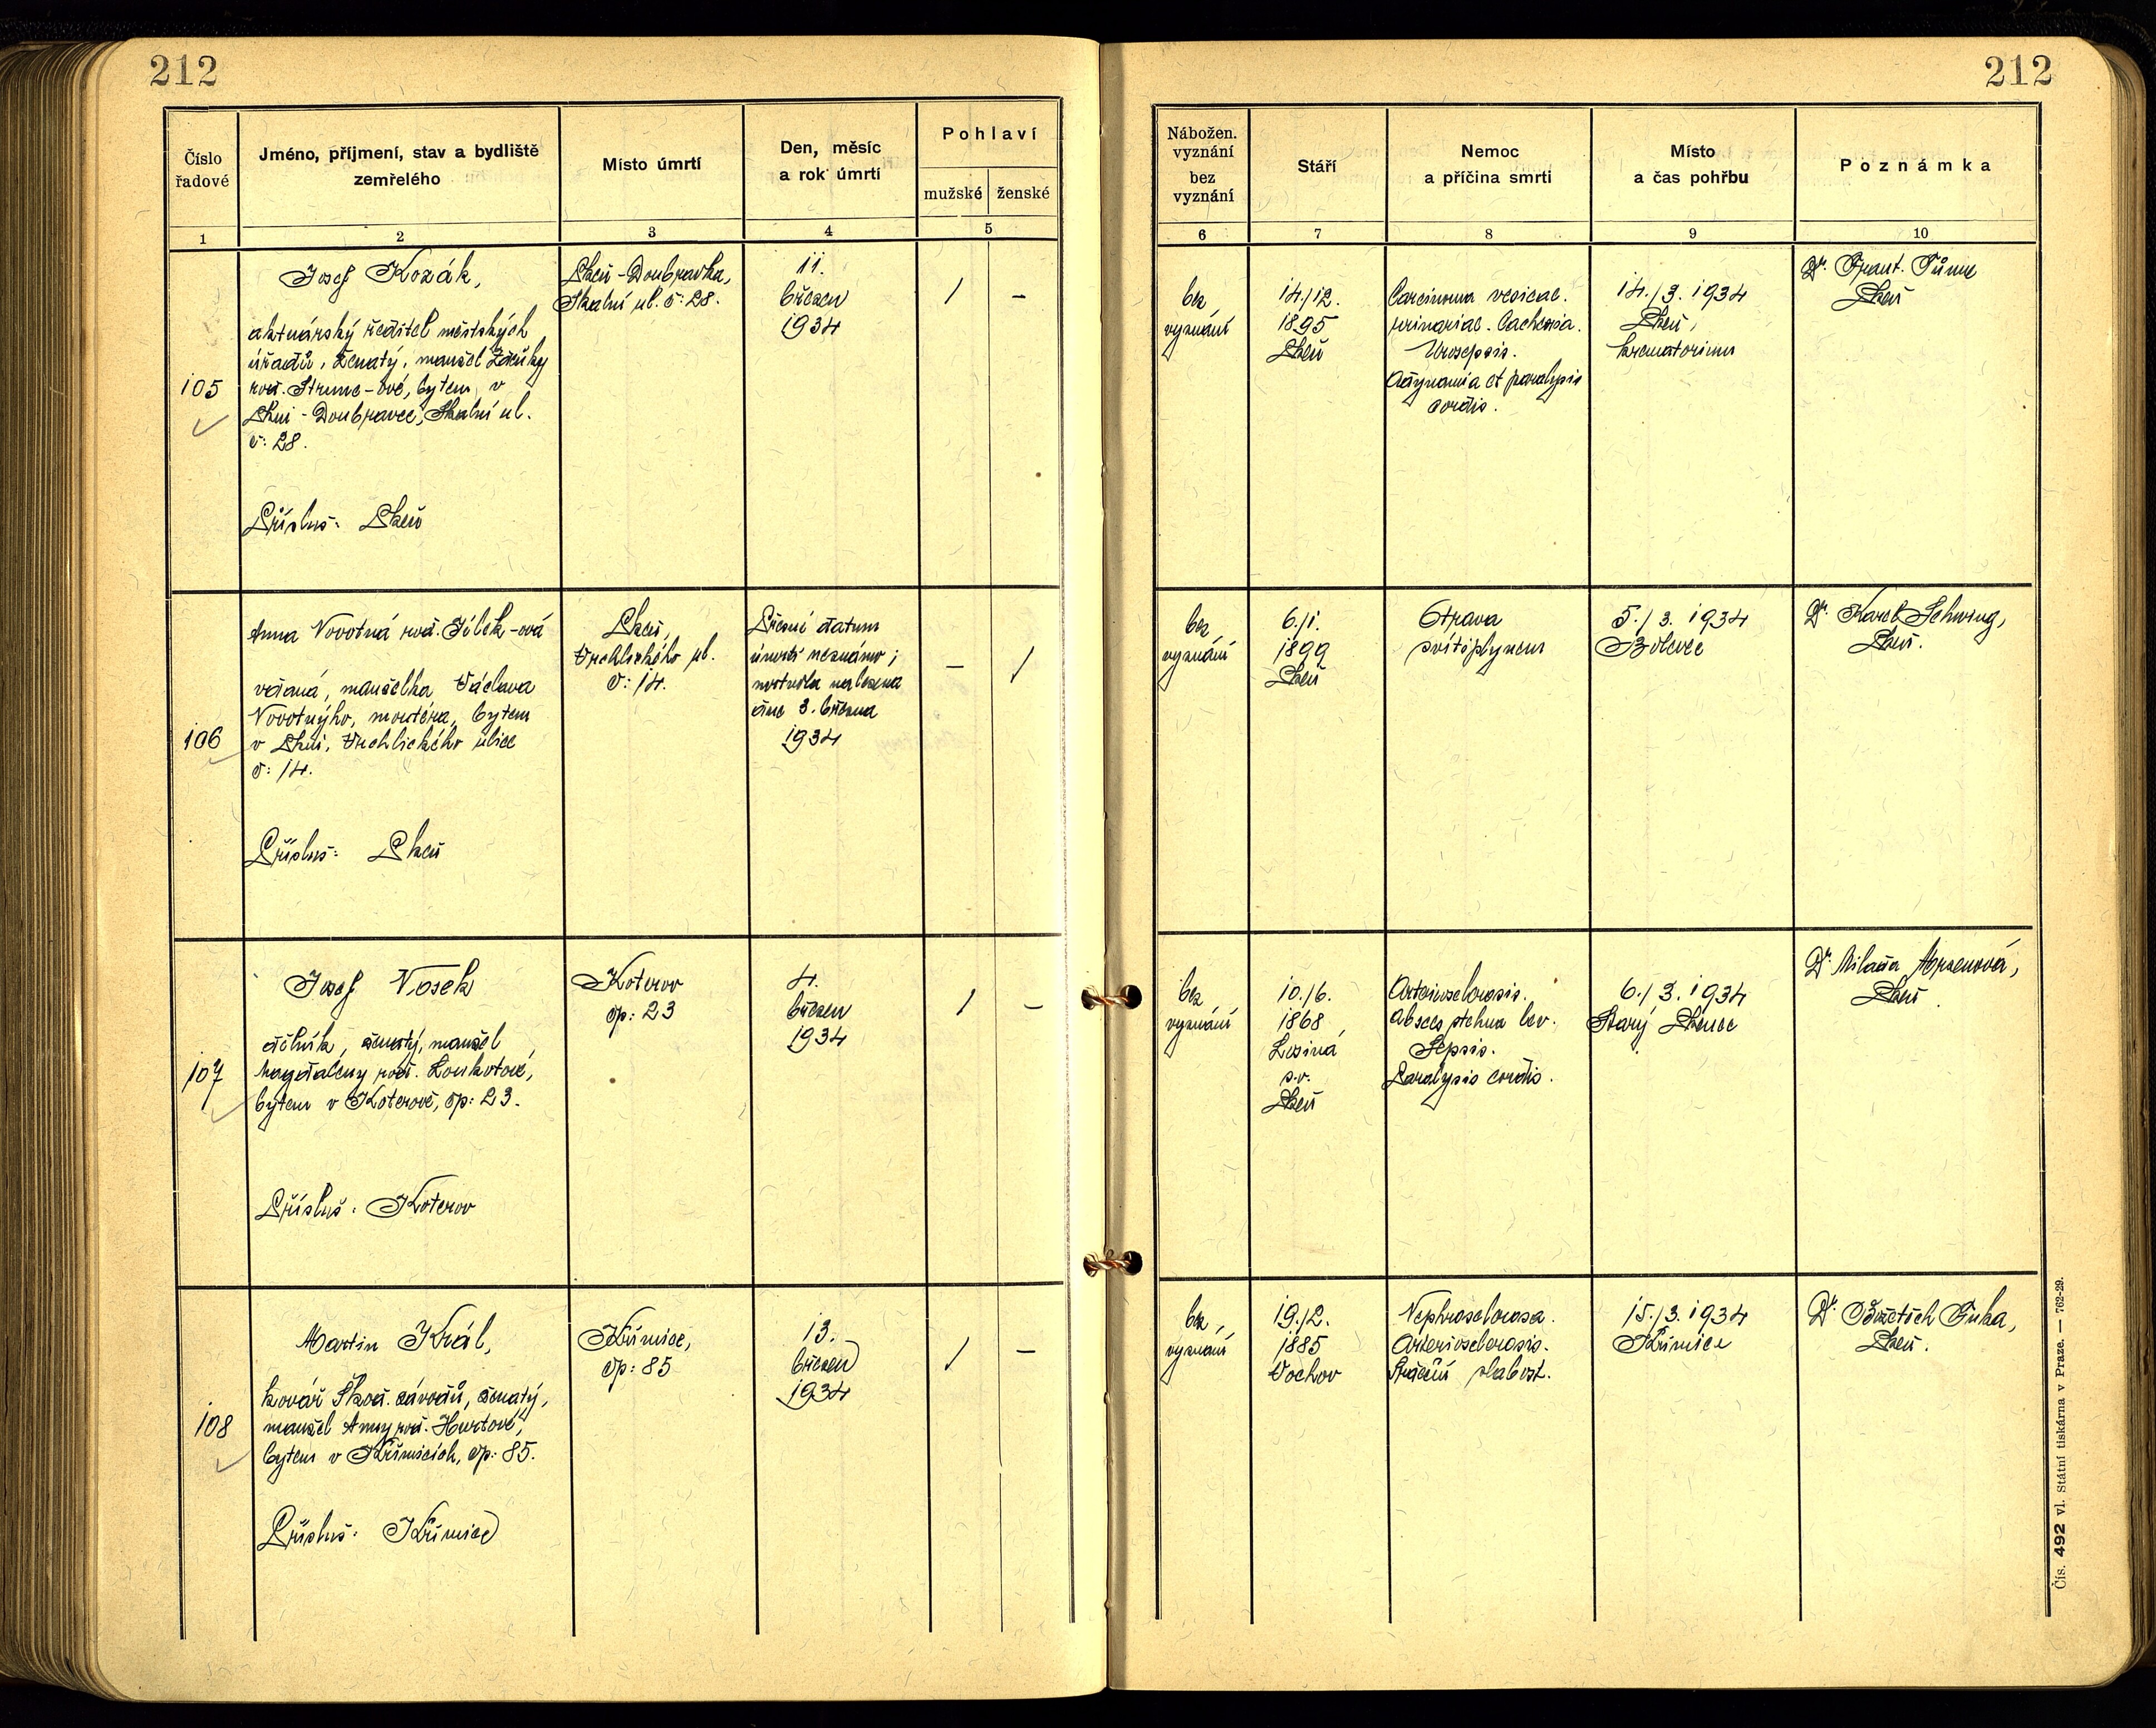 212
212
Číslo
řadové
Jméno, příjmení, stav a bydliště
zemřelého
Místo úmrtí
Den, měsíc
a rok úmrtí
Pohlaví
mužské
ženské
Nábožen.
vyznání
bez
vyznání
Stáří
Nemoc
a příčina smrti
Místo
a čas pohřbu
Poznámka
1
2
3
4
5
6
7
8
9
10
105
Josef Kozák,
aktuárský ředitel městských
úřadů, ženatý, manžel Zdeňky
roz. -ové, bytem v
Plzni-Doubravce, Skalní ul.
č: 28.
Přísluš: Plzeň
Plzeň-Doubravka,
Skalní ul. č: 28.
11.
březen
1934
/
–
bez
vyznání
14./12.
1895
Plzeň
Carcinoma vesicae.
urinariae. Cachexia.
Urosepsis.
Adynamia et paralysis
cordis.
14./3. 1934
Plzeň,
krematorium
Dr. Frant. Tůma
Plzeň
106
Anna Novotná roz. Jílek-ová
vdaná, manželka Václava
Novotného, montéra, bytem
v Plzni, Vrchlického ulice
č: 14.
Přísluš: Plzeň
Plzeň,
Vrchlického ul.
č: 14.
Přesné datum
úmrtí neznámo;
mrtvola nalezena
dne 3. března
1934
–
/
bez
vyznání
6./1.
1899
Plzeň
Otrava
svítiplynem
5./3. 1934
Bolevec
Dr. Karel Schwing,
Plzeň.
107
Josef Nosek
dělník, ženatý, manžel
Magdaleny roz. Loukotové,
bytem v Koterově, čp: 23.
Přísluš: Koterov
Koterov
čp: 23
4.
březen
1934
/
–
bez
vyznání
10./6.
1868
Losiná
p.v.
Plzeň
Arteriosclerosis.
Absces stehna lev.
Sepsis.
Paralysis cordis.
6./3. 1934
Starý Plzenec
Dr. Milada
Plzeň
108
Martin Král,
kovář Škod. závodů, ženatý,
manžel Anny roz. Hurtové,
bytem v Křimicích, čp: 85.
Přísluš: Křimice
Křimice,
čp: 85
13.
březen
1934
/
–
bez
vyznání
19./2.
1885
Vochov
Nephrosclerosa.
Arteriosclerosis.
Srdeční slabost.
15./3. 1934
Křimice
Dr. Břetisch Fuka,
Plzeň.
Čís. 492 vl. Státní tiskárna v Praze. — 762-29.